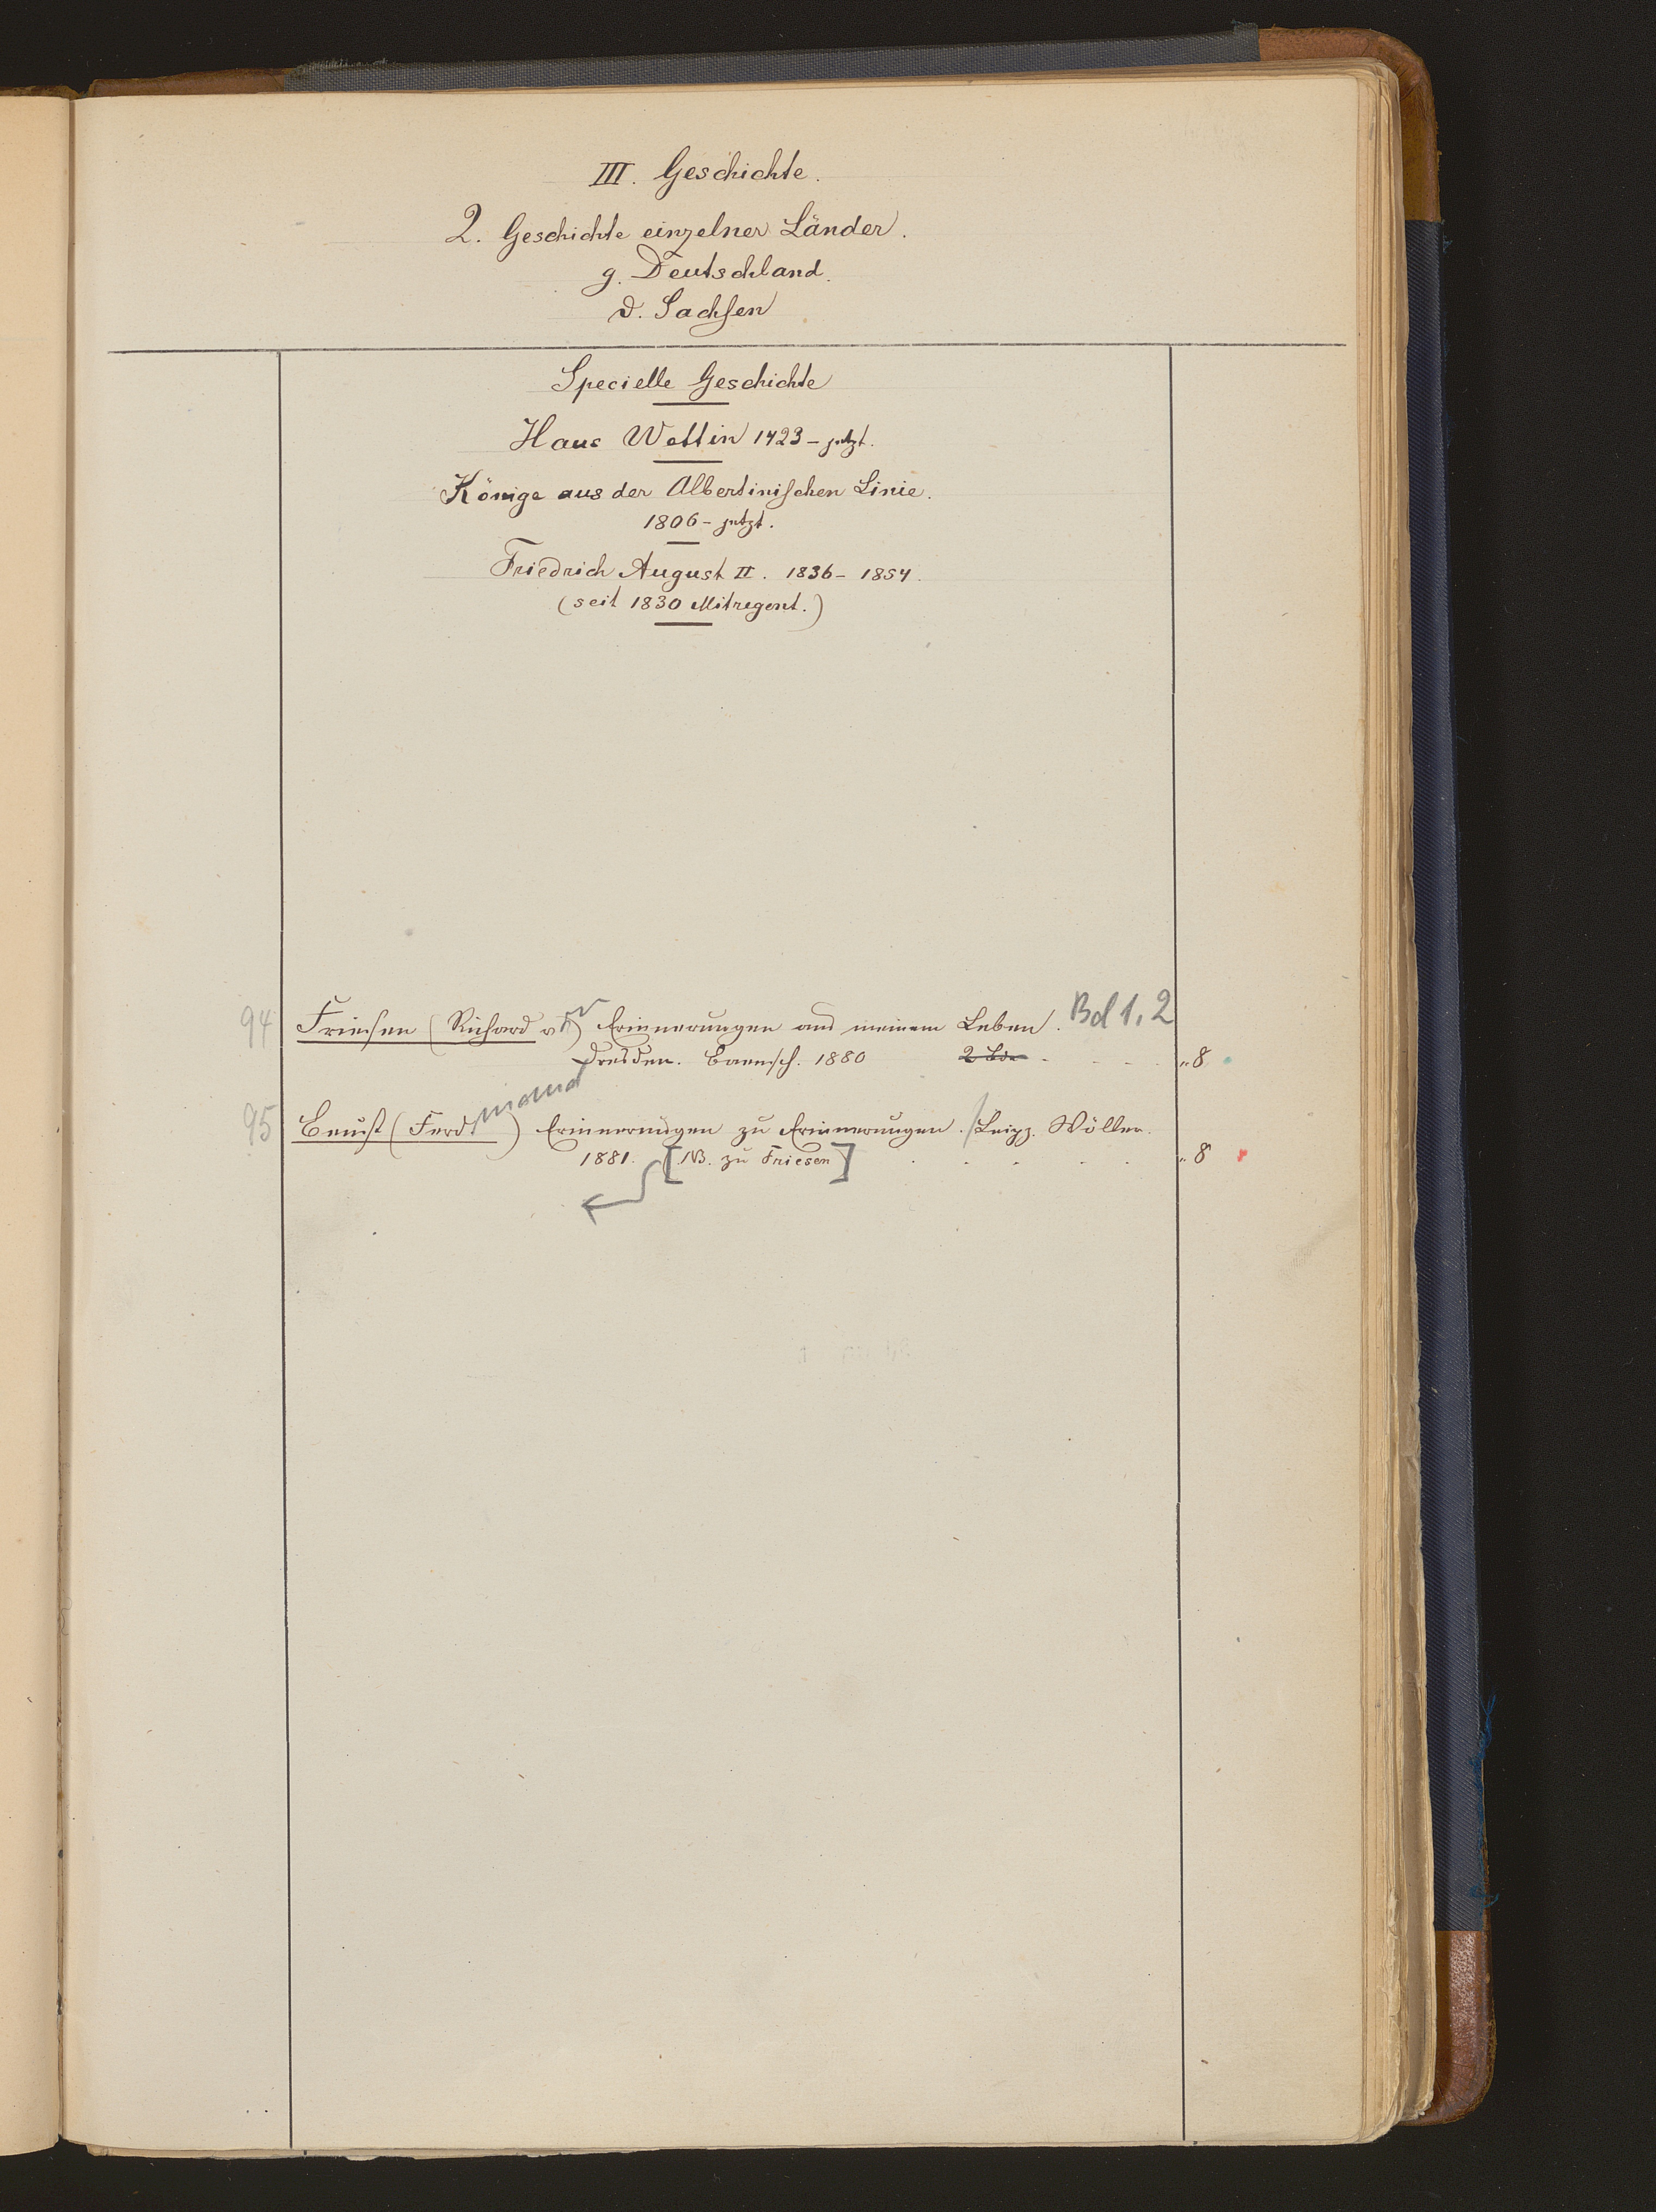 III. Geschichte.
2. Geschichte einzelner Länder.
g. Deutschland.
d. Sachsen
Specielle Geschichte
Haus Wettin 1423 - jetzt.
Könige aus der Albertinischen Linie.
1806 - jetzt.
Friedrich August II. 1836 - 1854.
(seit 1830 Mitregent.)
94 Friesen (Richard v.) Erinnerungen aus meinem Leben. Bd 1. 2
Dresden. Baensch. 1880 2 Bde . . . . „ 8
95 Beust (Ferdinand) Erinnerungen zu Erinnerungen. / Leipz. Wöller.
1881. [NB. zu Friesen] . . . . . „ 8